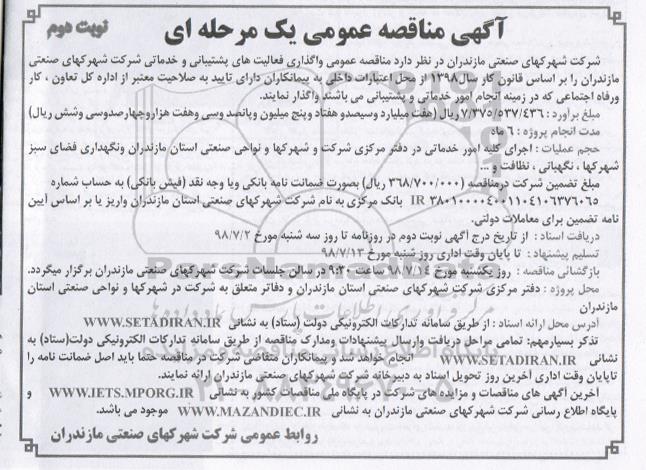 آگهی مناقصه عمومی یک مرحله ای
نوبت دوم
شرکت شهرکهای صنعتی مازندران در نظر دارد مناقصه عمومی واگذاری فعالیت های پشتیبانی و خدماتی شرکت شهرکهای صنعتی
مازندران را بر اساس قانون کار سال۱۳۹۸ از محل اعتبارات داخلی به پیمانکاران دارای تایید به صلاحیت معتبر از اداره کل تعاون ، کار
ورفاه اجتماعی که در زمینه انجام امور خدماتی و پشتیبانی می باشند واگذار نمایند.
مبلغ برآورد : ۷/۳۷۵/۵۳۷/۴۳۶ ریال (هفت میلیارد وسیصدو هفتاد وپنج میلیون وپانصد وسی وهفت هزاروچهارصدوسی وشش ریال)
مدت انجام پروژه : ۶ ماه
حجم عملیات : اجرای کلیه امور خدماتی در دفتر مرکزی شرکت و شهرکها و نواحی صنعتی استان مازندران ونگهداری فضای سبز
شهرکها ، نگهبانی ، نظافت و ...
مبلغ تضمین شرکت درمناقصه (۳۶۸/۷۰۰/۰۰۰ ریال) بصورت ضمانت نامه بانکی ویا وجه نقد (فیش بانکی) به حساب شماره
IR ۳۸۰۱۰۰۰۰۴۰۰۱۱۰۴۱۰۶۳۷۶۰۶۵ بانک مرکزی به نام شرکت شهرکهای صنعتی استان مازندران واریز یا بر اساس آیین
نامه تضمین برای معاملات دولتی.
دریافت اسناد : از تاریخ درج آگهی نوبت دوم در روزنامه تا روز سه شنبه مورخ ۹۸/۷/۲
تسلیم پیشنهاد : تا پایان وقت اداری روز شنبه مورخ ۹۸/۷/۱۳
بازگشائی مناقصه : روز یکشنبه مورخ ۹۸/۷/۱۴ ساعت ۹:۳۰ در سالن جلسات شرکت شهرکهای صنعتی مازندران برگزار میگردد.
محل پروژه : دفتر مرکزی شرکت شهرکهای صنعتی استان مازندران و دفاتر متعلق به شرکت در شهرکها و نواحی صنعتی استان
مازندران
آدرس محل ارائه اسناد : از طریق سامانه تدارکات الکترونیکی دولت (ستاد) به نشانی WWW.SETADIRAN.IR
تذکر بسیارمهم: تمامی مراحل دریافت وارسال پیشنهادات ومدارک مناقصه از طریق سامانه تدارکات الکترونیکی دولت(ستاد) به
نشانی WWW.SETADIRAN.IR انجام خواهد شد و پیمانکاران متقاضی شرکت در مناقصه حتما باید اصل ضمانت نامه را
تاپایان وقت اداری آخرین روز تحویل اسناد به دبیرخانه شرکت شهرکهای صنعتی مازندران ارائه نمایند.
آخرین آگهی های مناقصات و مزایده های شرکت در پایگاه ملی مناقصات کشور به نشانی WWW.IETS.MPORG.IR و
پایگاه اطلاع رسانی شرکت شهرکهای صنعتی مازندران به نشانی WWW.MAZANDIEC.IR موجود می باشد.
روابط عمومی شرکت شهرکهای صنعتی مازندران